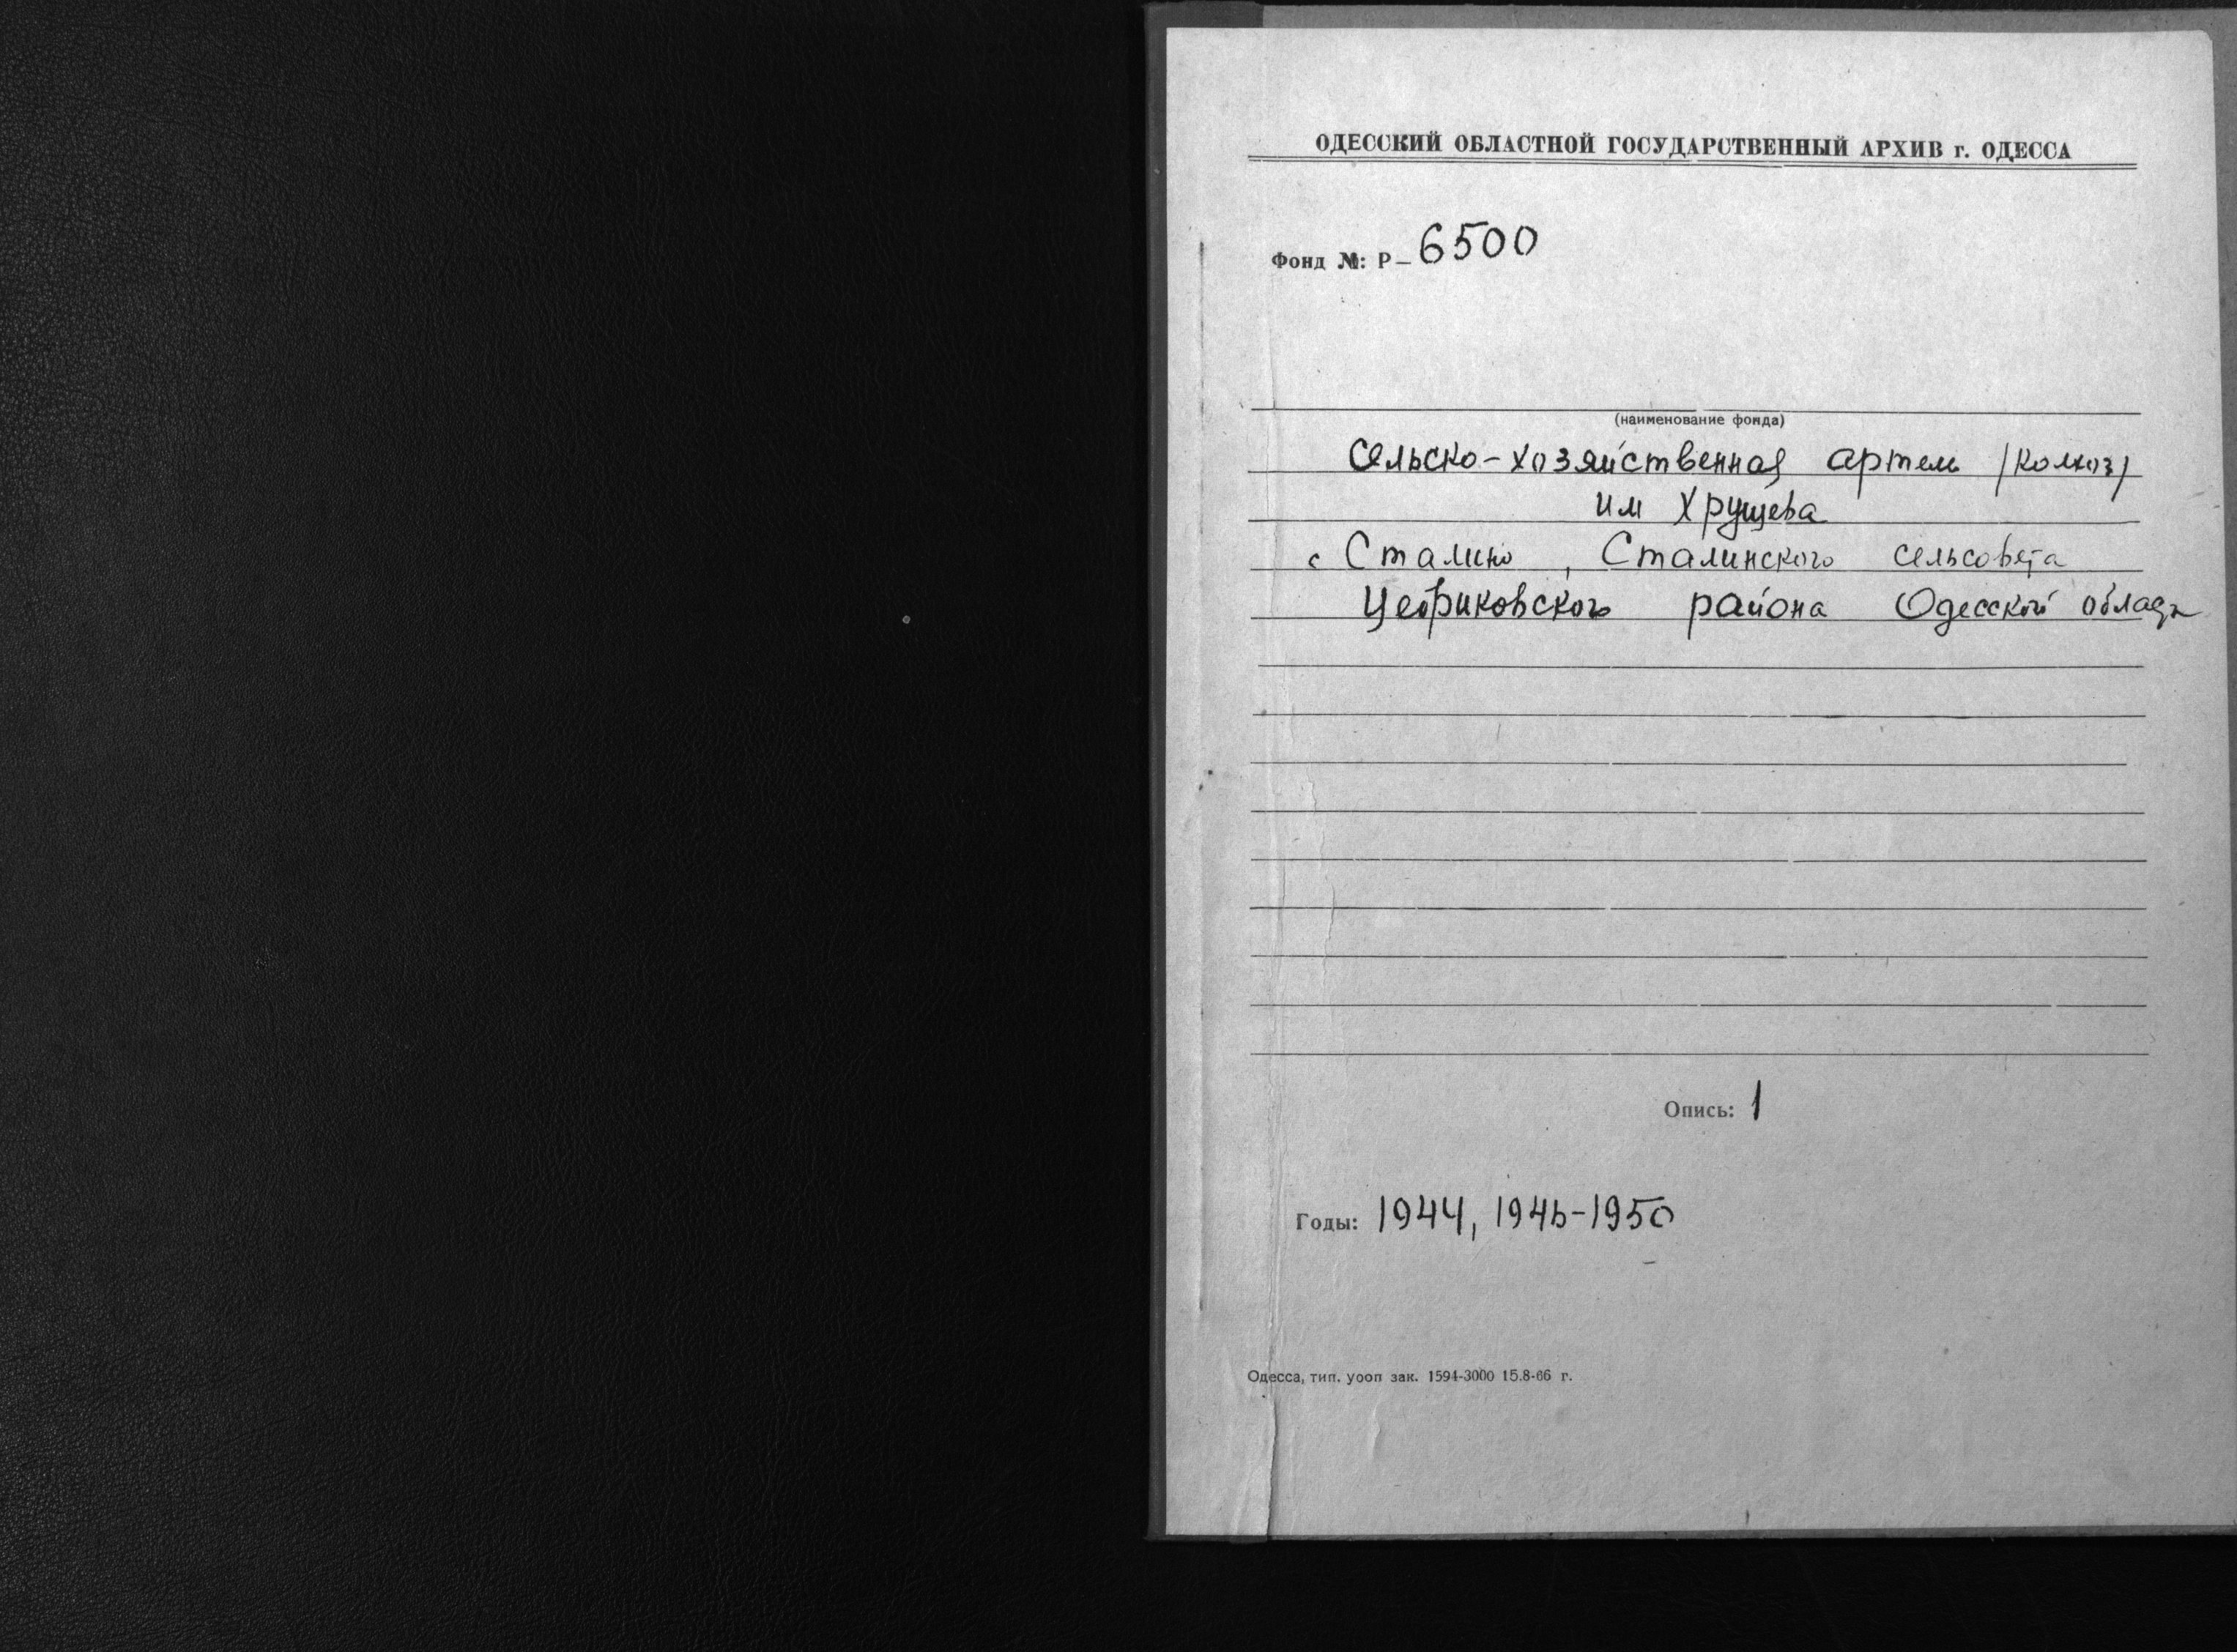 ОДЕССКИЙ ОБЛАСТНОЙ ГОСУДАРСТВЕННЫЙ АРХИВ г. ОДЕССА
Фонд №: Р- 6500
(наименование фонда)
Сельско-хозяйственная артель /колхоз/
им Хрущева
с Сталино, Сталинского сельсовета
Цебриковского района Одесской
Опись: 1
Годы: 1944, 1946-1950
Одесса, тип. уооп зак. 1594-3000 15.8-66 г.